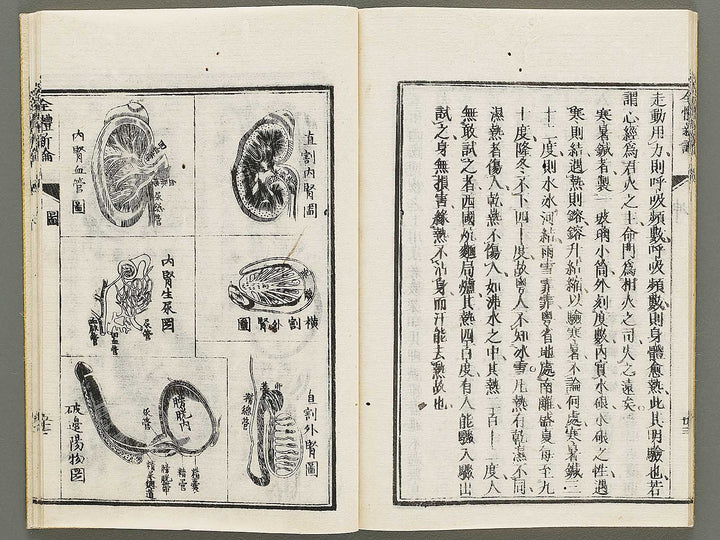 走動用力則呼吸頻數呼吸頻數則身體愈熱此其明驗也若
謂心經爲君火之主命門爲相火之司失之遠矣
寒暑鍼者製一玻璃小筒外刻度數內實水銀水銀之性遇
寒則結遇熱則鎔鎔升結縮以驗寒暑不論何處寒暑鍼三
十二度則水冰河結雨雪霏霏粵省地處南離盛夏每至九
十度隆冬不下四十度故粵人不知冰雪凡熱有乾濕不同
濕熱者傷人乾熱不傷人如沸水之中其熱二百一十二度人
無敢試之者西國炕麵局爐其熱四百度有人能驟入驟出
試之身無損害緣熱不沾身而汗能去熱故也
全體新論
圖
直割內腎圖
內腎血管圖
尿紙管
橫割外腎圖
內腎生尿圖
尿管
血管
直割外腎圖
精線管
膀胱內
尿管
精囊
精管
破邊陽物圖